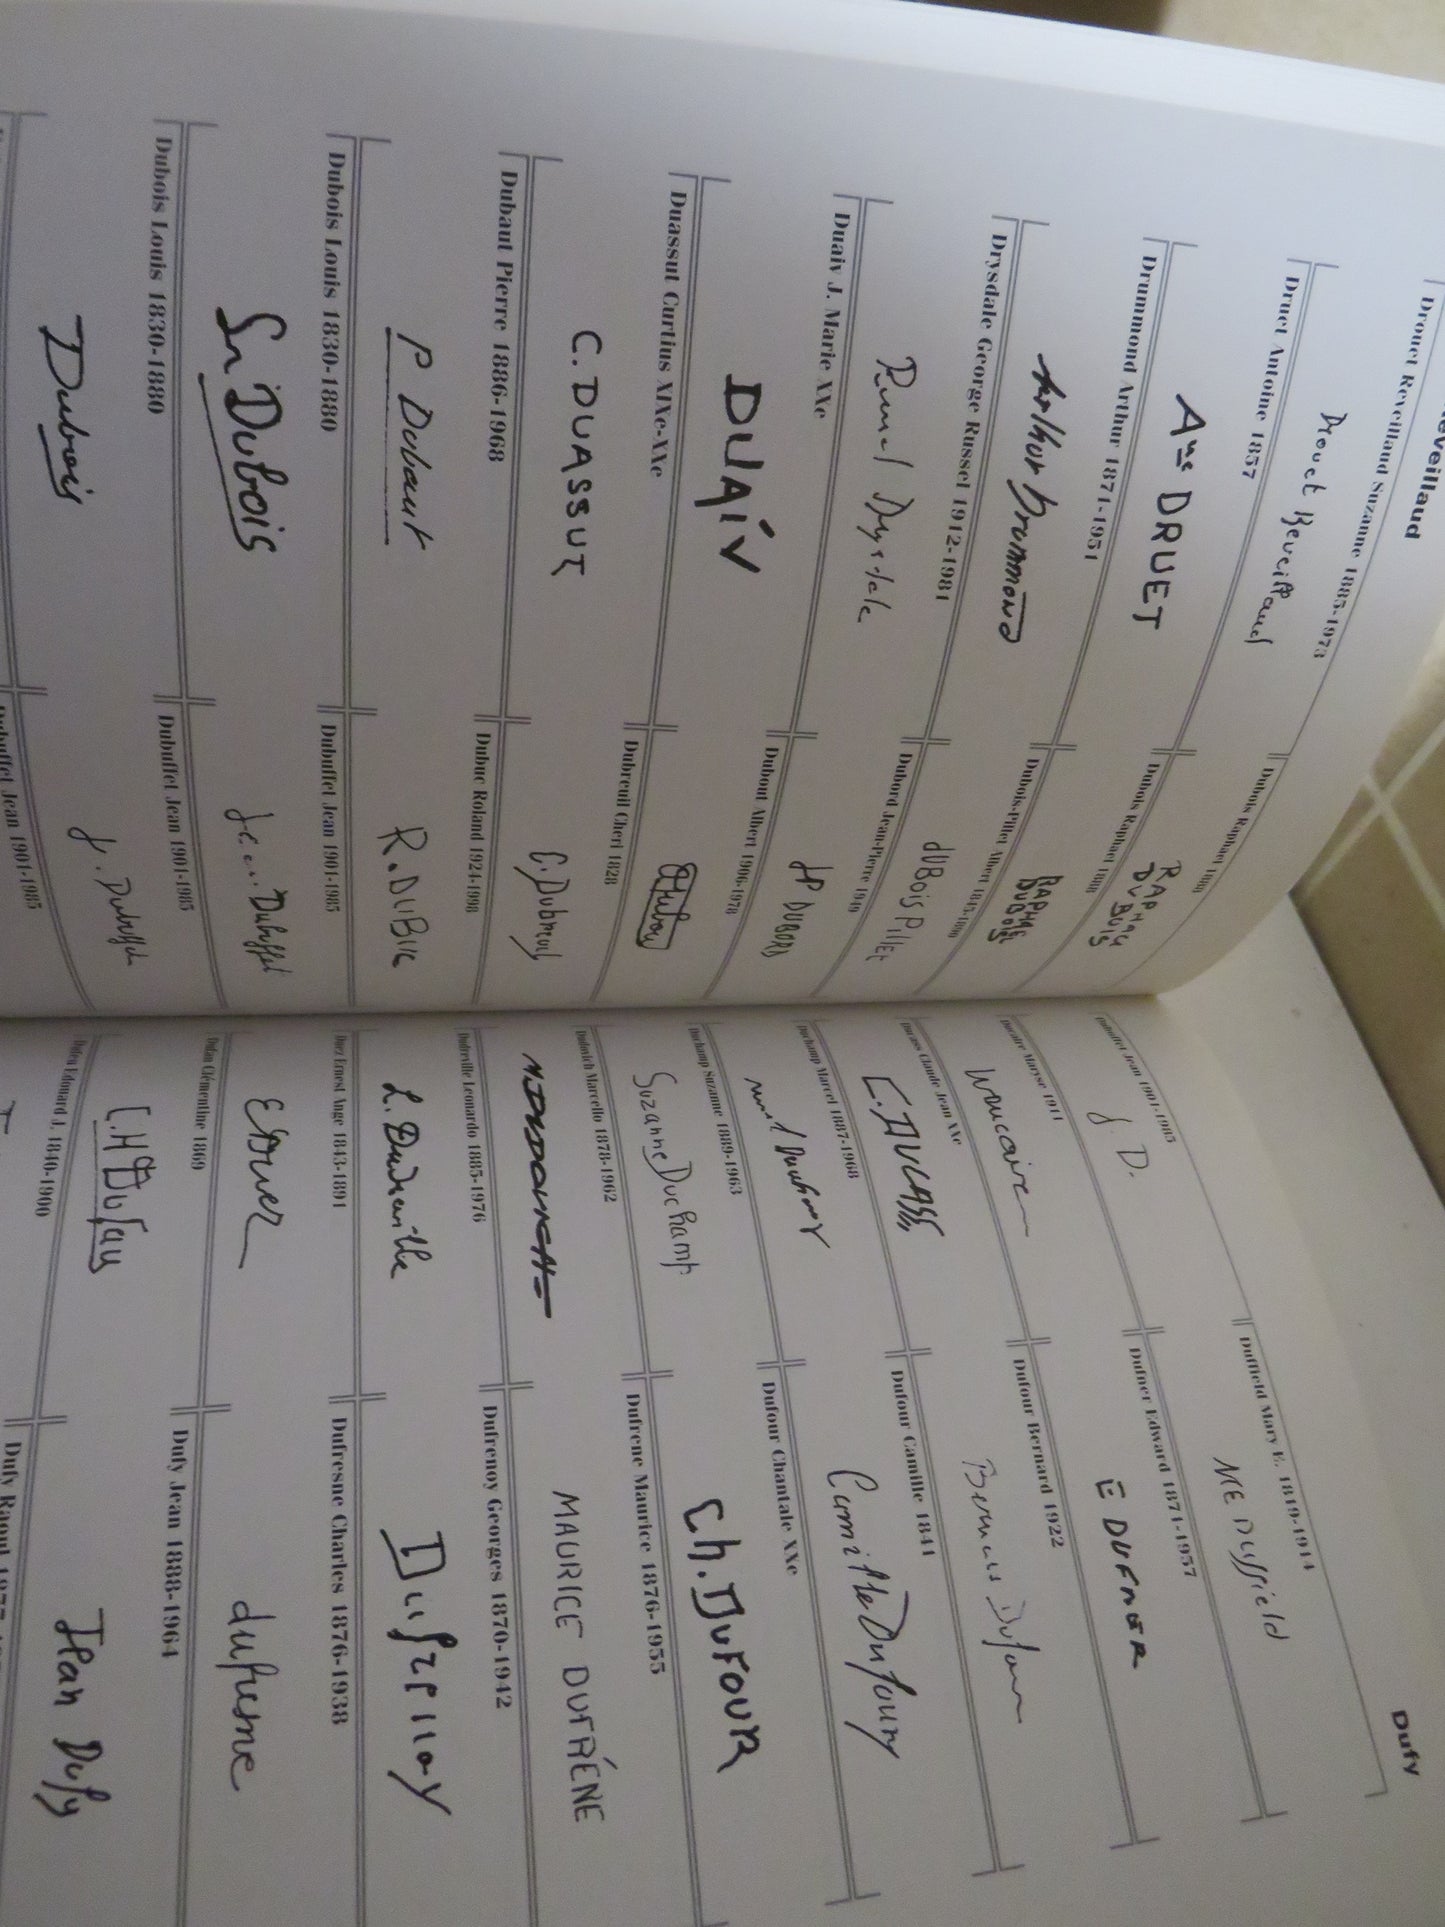 Reveillaud
Drouet Reveillaud Suzanne 1885-1973
Drouet Reveillaud
Druet Antoine 1857
Ane DRUET
Drummond Arthur 1871-1951
Arthur Drummond
Drysdale George Russel 1912-1981
Russel Drysdale
Duaiv J. Marie XXe
DUAIV
Duassut Curtius XIXe-XXe
C. DUASSUT
Dubaut Pierre 1886-1968
P Dubaut
Dubois Louis 1830-1880
Dubois
Dubois Louis 1830-1880
Dubois
Dubois Raphael 1888
RAPHAEL
DUBOIS
Dubois Raphael 1888
RAPHAEL
DUBOIS
Dubois-Pillet Albert 1845-1890
dUBois PillEt
Dubord Jean-Pierre 1949
JP DUBORD
Dubout Albert 1906-1978
Dubout
Dubreuil Cheri 1828
C. Dubreuil
Dubuc Roland 1924-1998
R. DUBUC
Dubuffet Jean 1901-1985
Dubuffet
Dubuffet Jean 1901-1985
J. Dubuffet
Dubuffet Jean 1901-1985
Dubuffet Jean 1901-1985
J. D.
Ducaire Maryse 1911
Ducass Claude Jean XXe
C. DUCASS
Duchamp Marcel 1887-1968
Duchamp Suzanne 1889-1963
Suzanne Duchamp
Dudovich Marcello 1878-1962
M. DUDOVICH
Dudreville Leonardo 1885-1976
L. Dudreville
Duez Ernest Ange 1843-1891
E DUEZ
Dufau Clémentine 1869
C. H Dufau
Dufeu Edouard J. 1840-1900
Dufy
Duffield Mary E. 1819-1914
ME Duffield
Dufner Edward 1871-1957
E DUFNER
Dufour Bernard 1922
Bernard Dufour
Dufour Camille 1841
Camille Dufour
Dufour Chantale XXe
Ch. DUFOUR
Dufrene Maurice 1876-1955
MAURICE DUFRÉNE
Dufrenoy Georges 1870-1942
Dufrenoy
Dufresne Charles 1876-1938
dufresne
Dufy Jean 1888-1964
Jean Dufy
Dufy Raoul